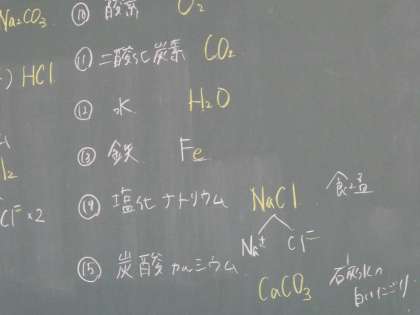 Na₂CO₃
⑩ 酸素 O₂
⑪ 二酸化炭素 CO₂
) HCl
⑫ 水 H₂O
⑬ 鉄 Fe
l₂
⑭ 塩化ナトリウム NaCl 食塩
Cl⁻×2
Na⁺ Cl⁻
⑮ 炭酸カルシウム CaCO₃
石灰水の
白いにごり